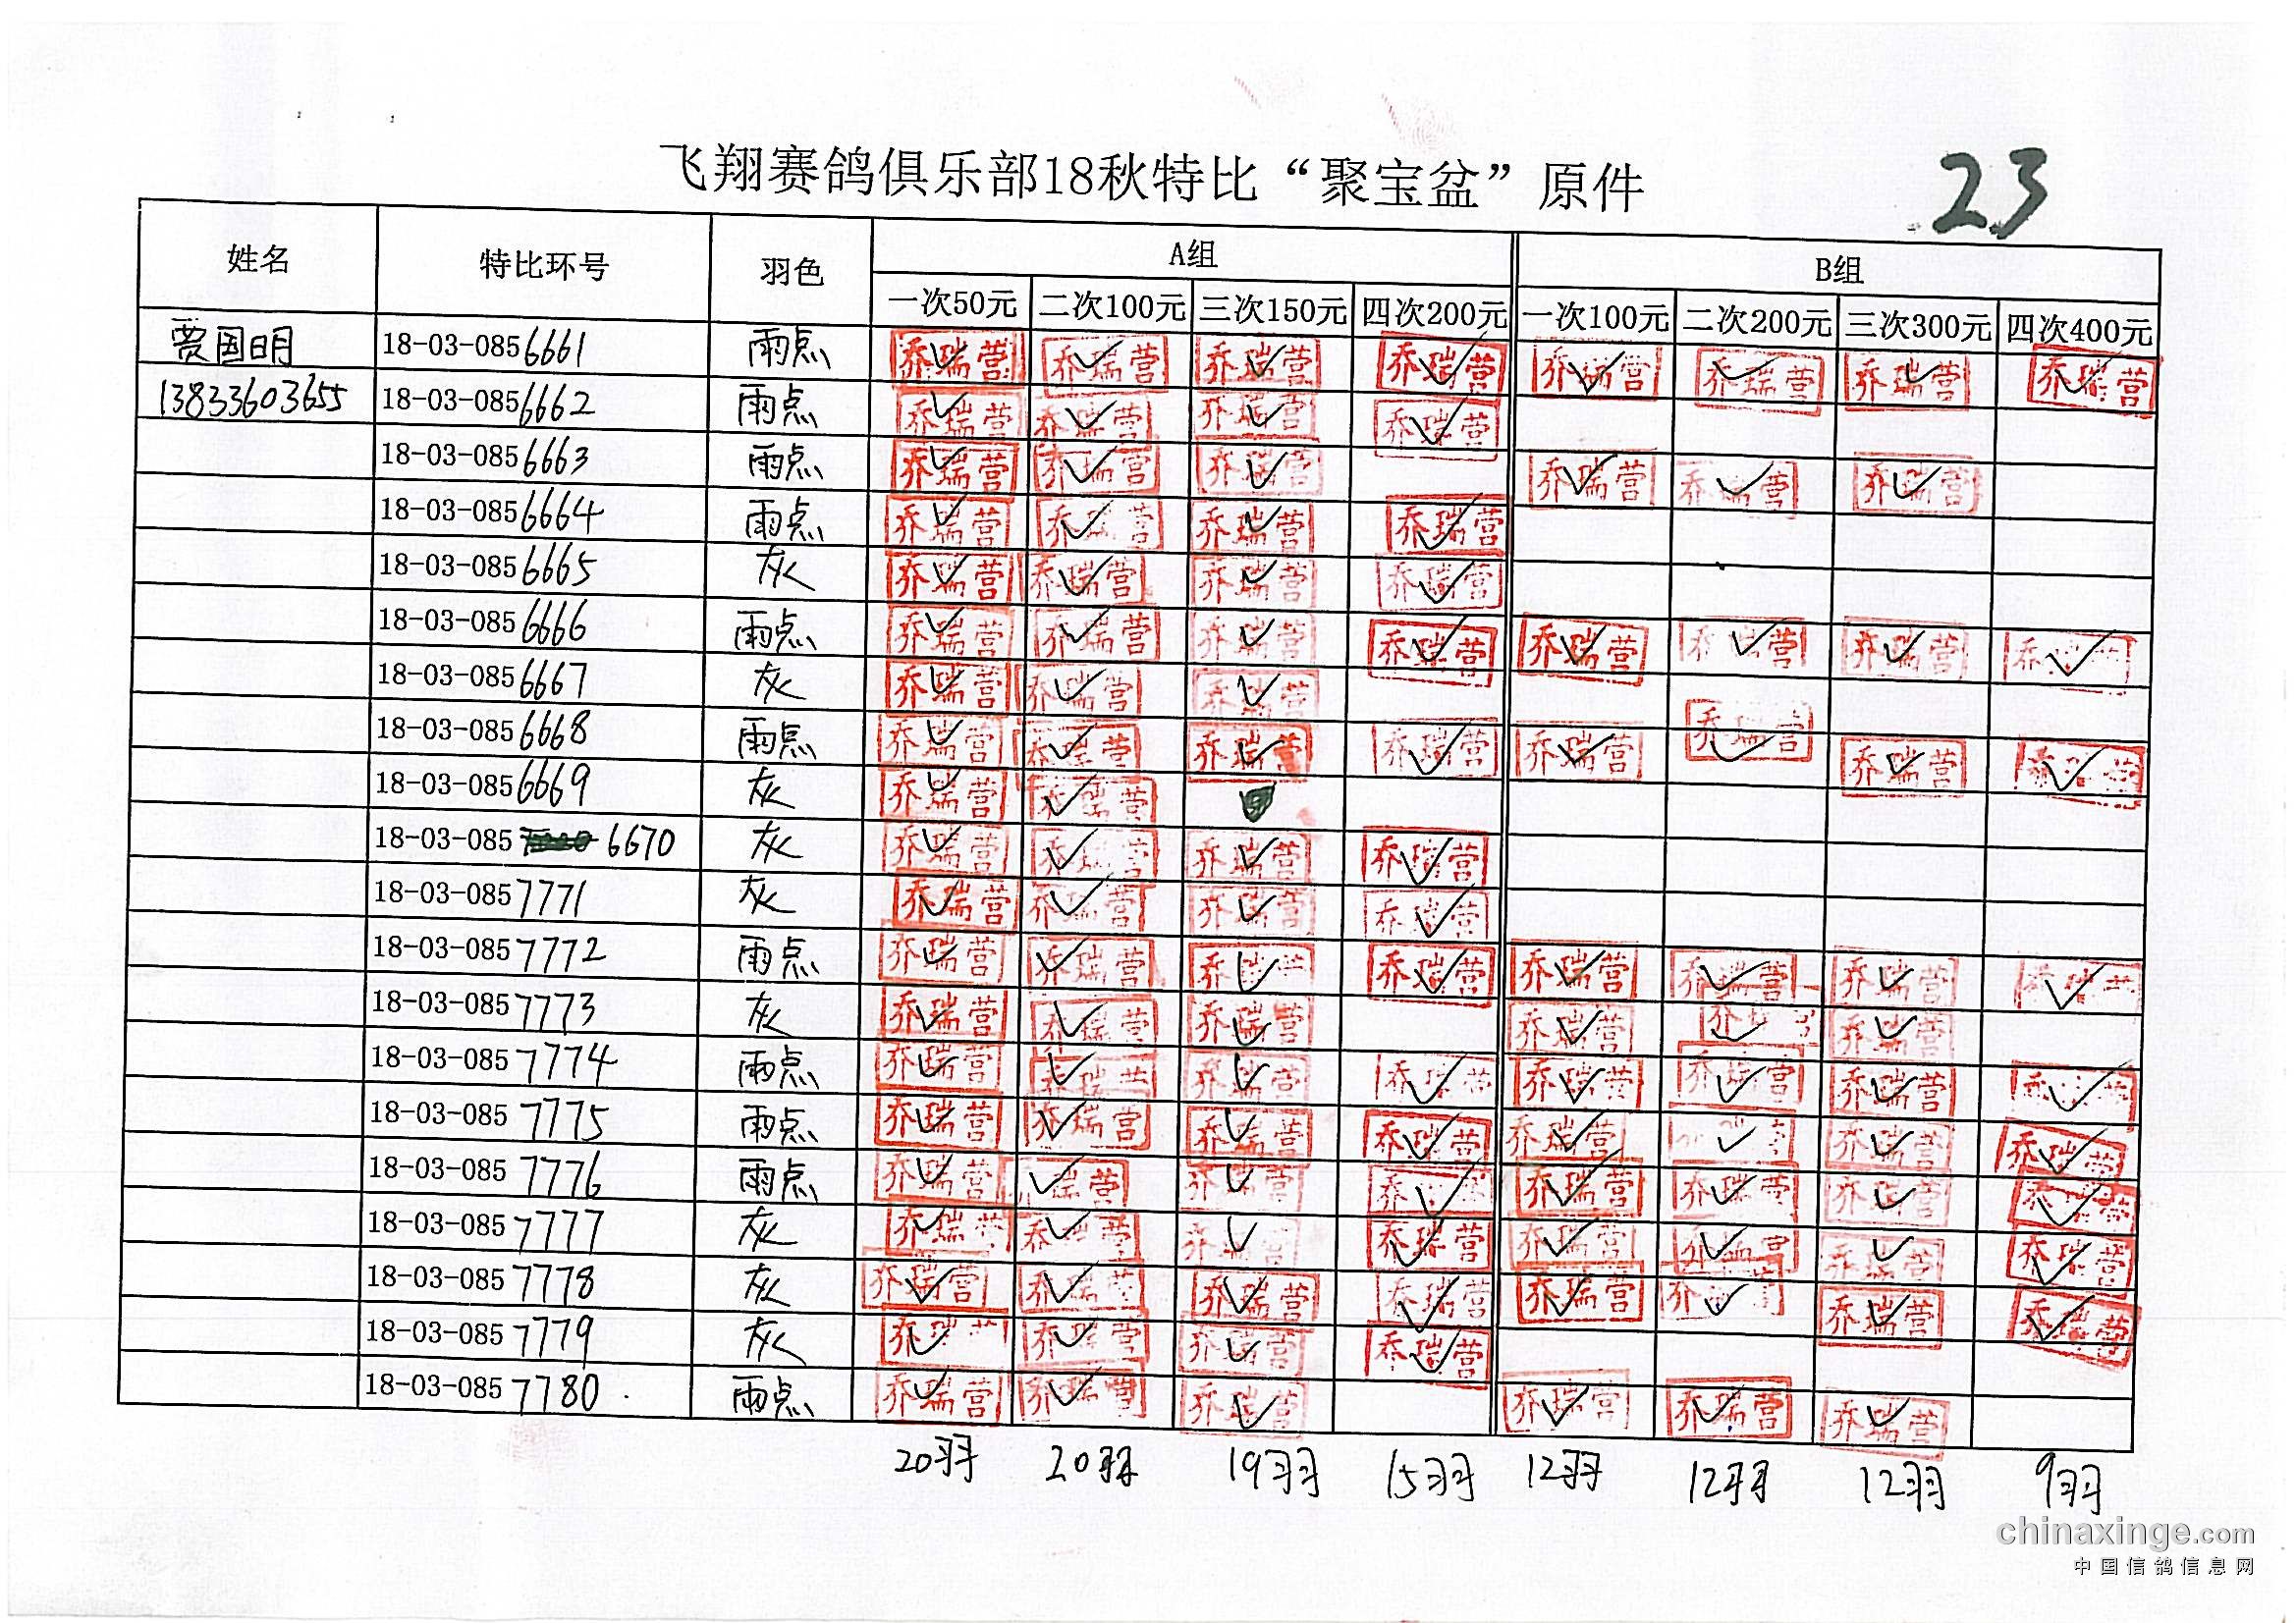 飞翔赛鸽俱乐部18秋特比“聚宝盆”原件
23
姓名 特比环号 羽色 A组 B组
一次50元 二次100元 三次150元 四次200元 一次100元 二次200元 三次300元 四次400元
贾国明 18-03-0856661 雨点 乔瑞营 乔瑞营 乔瑞营 乔瑞营 乔瑞营 乔瑞营 乔瑞营 乔瑞营
13833603655 18-03-0856662 雨点 乔瑞营 乔瑞营 乔瑞营 乔瑞营
18-03-0856663 雨点 乔瑞营 乔瑞营 乔瑞营 乔瑞营 乔瑞营 乔瑞营
18-03-0856664 雨点 乔瑞营 乔瑞营 乔瑞营 乔瑞营
18-03-0856665 灰 乔瑞营 乔瑞营 乔瑞营 乔瑞营
18-03-0856666 雨点 乔瑞营 乔瑞营 乔瑞营 乔瑞营 乔瑞营 乔瑞营 乔瑞营
18-03-0856667 灰 乔瑞营 乔瑞营 乔瑞营
18-03-0856668 雨点 乔瑞营 乔瑞营 乔瑞营 乔瑞营 乔瑞营 乔瑞营 乔瑞营
18-03-0856669 灰 乔瑞营 乔瑞营
18-03-085 6670 灰 乔瑞营 乔瑞营 乔瑞营 乔瑞营
18-03-0857771 灰 乔瑞营 乔瑞营 乔瑞营 乔瑞营
18-03-0857772 雨点 乔瑞营 乔瑞营 乔瑞营 乔瑞营 乔瑞营 乔瑞营 乔瑞营
18-03-0857773 灰 乔瑞营 乔瑞营 乔瑞营 乔瑞营 乔瑞营
18-03-0857774 雨点 乔瑞营 乔瑞营 乔瑞营 乔瑞营 乔瑞营 乔瑞营
18-03-0857775 雨点 乔瑞营 乔瑞营 乔瑞营 乔瑞营 乔瑞营 乔瑞营 乔瑞营
18-03-0857776 雨点 乔瑞营 乔瑞营 乔瑞营 乔瑞营 乔瑞营 乔瑞营
18-03-0857777 灰 乔瑞营 乔瑞营 乔瑞营 乔瑞营 乔瑞营 乔瑞营 乔瑞营
18-03-0857778 灰 乔瑞营 乔瑞营 乔瑞营 乔瑞营 乔瑞营 乔瑞营 乔瑞营
18-03-0857779 灰 乔瑞营 乔瑞营 乔瑞营
18-03-0857780 雨点 乔瑞营 乔瑞营 乔瑞营 乔瑞营 乔瑞营 乔瑞营
20羽 20羽 19羽 15羽 12羽 12羽 12羽 9羽
chinaxinge.com
中国信鸽信息网